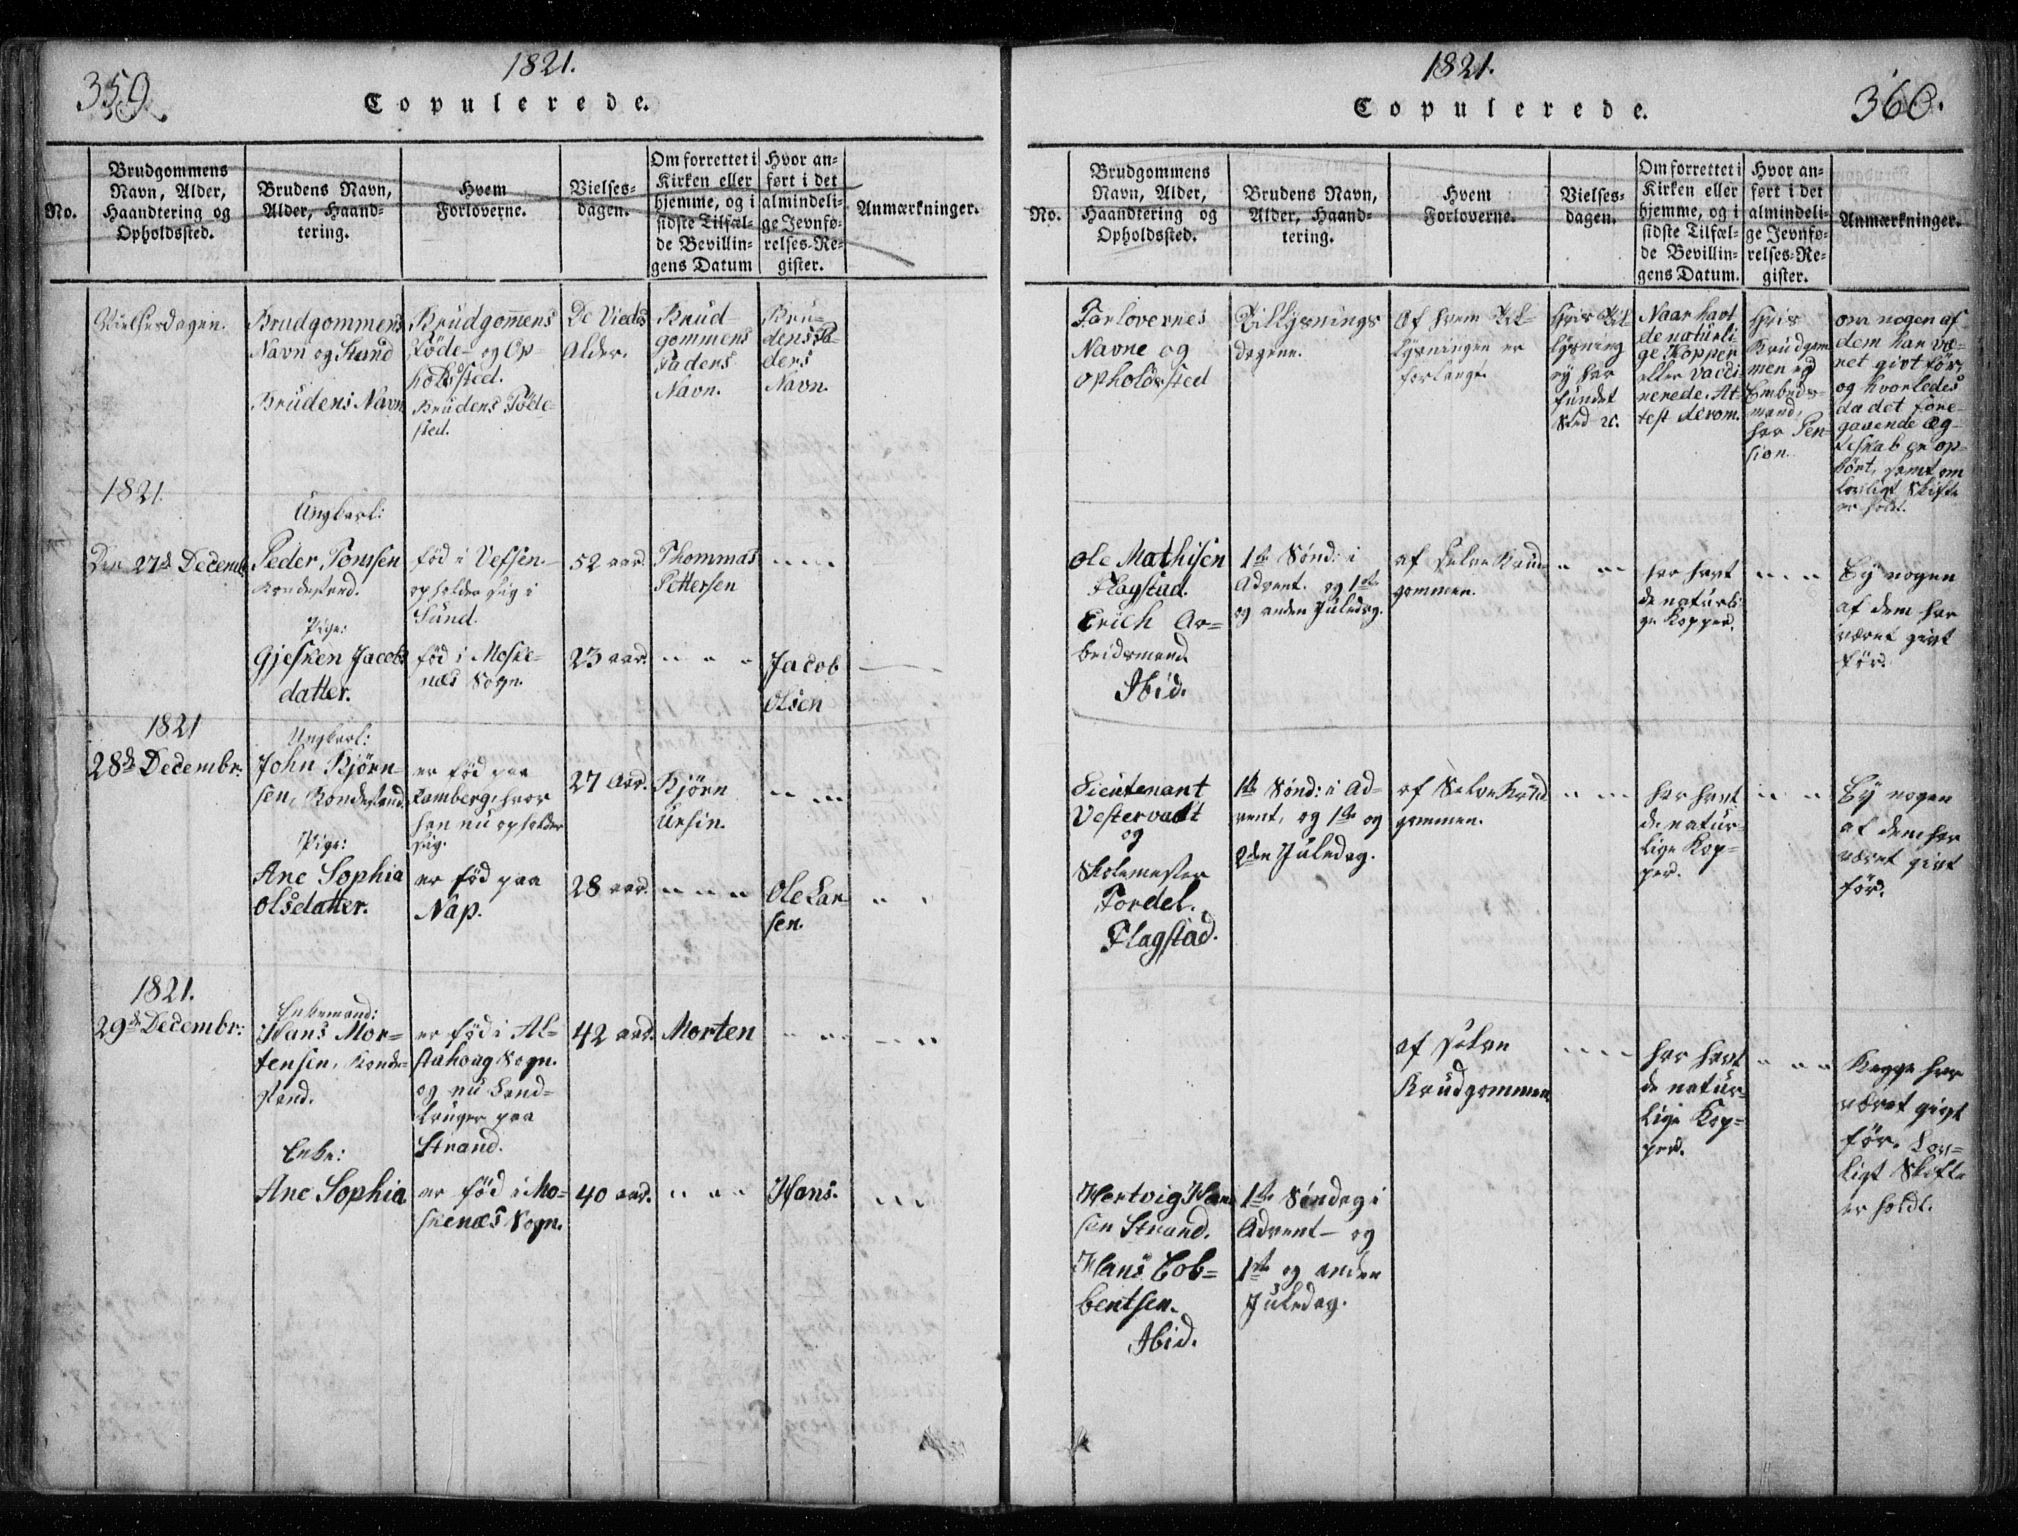 359
1821.
Copulerede.
No.
Brudgommens
Navn, Alder,
Haandtering og
Opholdssted.
Brudens Navn,
Alder, Haand-
tering.
Hvem
Forloverne.
Vielses-
dagen.
Om forrettet i
Kirken eller
hjemme, og i
sidste Tilfæl-
de Bevillin-
gens Datum
Hvor an-
ført i det
almindeli-
ge Jevnfø-
relses-Re-
gister.
Anmærkninger.
Vielsesdagen.
Brudgommens
Navn og Stand
Brudens Navn
Brudgom̅ens
Føde- og Op-
holdssted.
Brudens Føde-
sted.
De Viedes
Alder.
Brud-
gommens
Faders
Navn.
Bru-
dens Fa-
ders
Navn.
1821
Den 27de Decembr
Ungkarl:
Peder Tomssen
Bondestand.
Pige:
Gjesken Jacobs
datter.
fød i Vefsen.
opholder sig i
Sund.
fød i Moske-
næs Sogn.
52 aar.
23 aar.
Thommas
Pettersen
Jacob
Olsen
1821
28de Decembr:
Ungkarl:
John Bjørn-
sen, Bondestand.
Pige:
Ane Sophia
Olsdatter.
er fød paa
Ramberg, hvor
han nu opholder
sig.
er fød paa
Nap.
27 Aar.
28 aar.
Bjørn
Ursin.
Ole Lar-
sen.
1821.
29de Decembr:
Enkemand:
Hans Mor-
tensen, Bonde-
stand.
Enke:
Ane Sophia
er fød i Al-
stahoug Sogn.
og nu Land-
bruger paa
Strand.
er fød i Mo-
skenæs Sogn.
42 aar.
40 aar.
Morten
Hans.
1821.
360.
Copulerede.
No.
Brudgommens
Navn, Alder,
Haandtering og
Opholdssted.
Brudens Navn,
Alder, Haand-
tering.
Hvem
Forloverne.
Vielses-
dagen.
Om forrettet i
Kirken eller
hjemme, og i
sidste Tilfæl-
de Bevillin-
gens Datum.
Hvor an-
ført i det
almindeli-
ge Jevnfø-
relses-Re-
gister.
Anmærkninger.
Forlovernes
Navne og
Opholdssted
Tillysnings
dagene.
Af hvem Til-
lysningen er
forlangt.
Hvis Til-
lysning
ej har
fundet
Sted &c.
Naar havt
de naturli-
ge Kopper
eller Vacci-
nerede. At-
test derom.
Hvis
Brudgom-
men er
Embeds-
mand,
har Pen-
sion.
om nogen af
dem har væ-
ret givt før,
og hvorledes
da det fore-
gaaende Æg-
teskab er op-
hørt, samt om
lovligt Skifte
er holdt.
Ole Mathisen
Flagstad.
Erich Ar-
beidsmand
Ibid.
1ste Sønd: i
Advent. og 1ste
og anden Juledag.
af selve Brud-
gommen.
har havt
de naturli-
ge Kopper.
Ej nogen
af dem har
været givt
før.
Lieutenant
Vestervadt
og
Skolemester
Fordel.
Flagstad.
1ste Sønd: i Ad-
vent, og 1ste og
2den Juledag.
af Selve Brud
gommen.
har havt
de natur-
lige Kop-
per.
Ej nogen
af dem har
været givt
før.
Hertvig Han-
sen Strand.
Hans Cob-
bentsen.
Ibid.
1ste Søndag i
Advent- og
1ste og anden
Juledag.
af selve
Brudgommen
har havt
de natur-
lige Kop-
per.
Begge har
været givt
før. Lov-
ligt Skifte
er holdt.